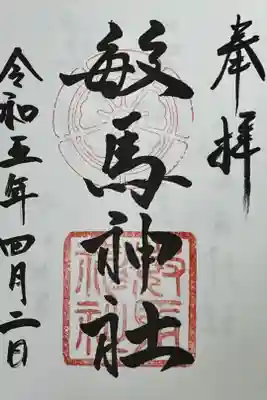 奉拝
敏馬神社
令和五年四月二日